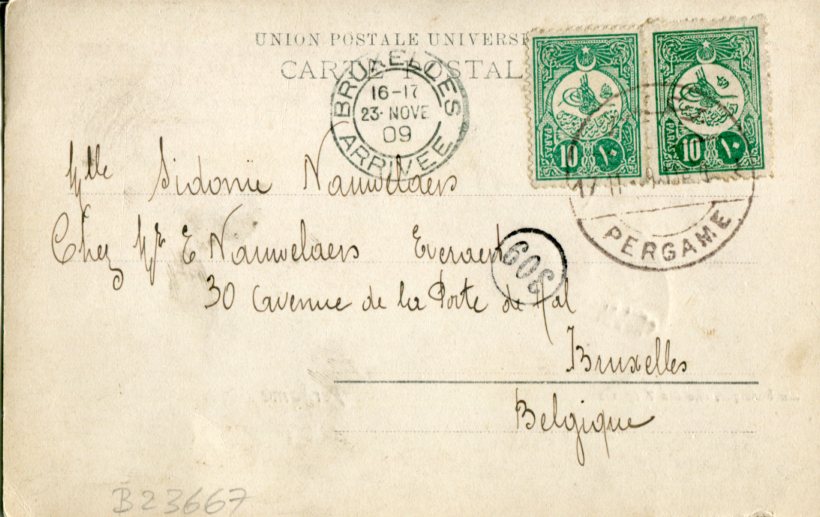 UNION POSTALE UNIVERSE
CARTE POSTAL
BRUXELLES
16-17
23·NOVE
09
ARRIVÉE
10 ١٠
PARAS
10 ١٠
PARAS
PERGAME
Mlle Sidonie Nauwelaers
Chez Mr E Nauwelaers Everaert
309
30 avenue de la Porte de Hal
Bruxelles
Belgique
B23667